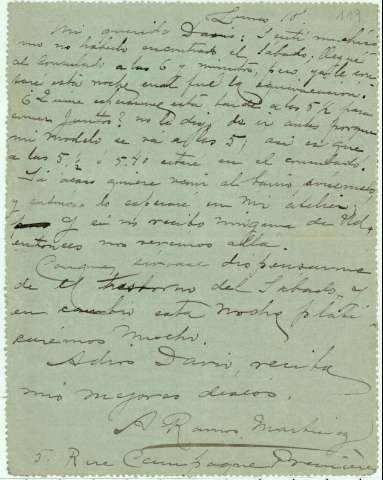 Lunes 10. 119
Mi querido Dario: Sentí muchísi
mo no haberlo encontrado el Sábado, llegué
al Consulado a las 6 y minutos, pero ya le
esta noche cual fué la equivocacion.
Quiere esperarme esta tarde a las 5 1/2 para
comer juntos? no le digo de ir antes porque
mi modelo se va a las 5, asi es que
a las 5 1/2 o 5.40 estaré en el consulado.
Si acaso quiere venir al barrio
y entonces lo esperaré en mi atelier,
Y si no recibo ninguna de Ud,
entonces nos veremos allá.
Conque, sírvase dispensarme
de el trastorno del Sábado, y
en cambio esta noche plati
caremos mucho.
Adios Dario, reciba
mis mejores deseos.
A Ramos Martinez
5. Rue Campagne Première